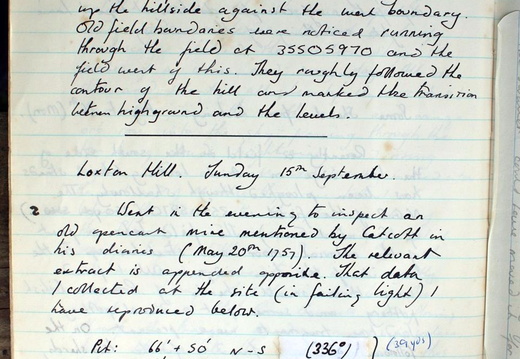 up the hillside against the west boundary.
Old field boundaries were noticed running
through the field at 35505970 and the
field west of this. They roughly followed the
contour of the hill and marked the transition
between high ground and the levels.
Loxton Hill. Sunday 15th September.
2 Went in the evening to inspect an
old opencast mine mentioned by Catcott in
his diaries (May 20th 1757). The relevant
extract is appended opposite. That data
I collected at the site (in failing light) I
have reproduced below.
Pit: 66' + 50' N-S (336°) (39yds)